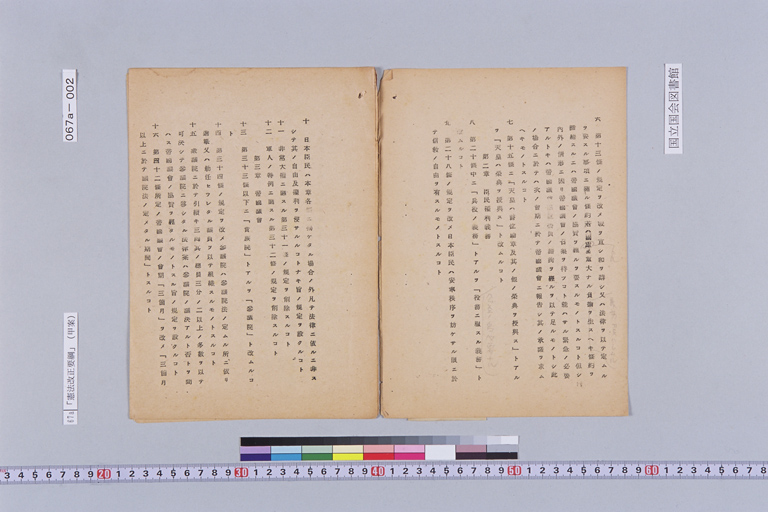 六 第十三條ノ規定ヲ改メ戰ヲ宣シ和ヲ講シ又ハ法律ヲ以テ定ムル
ヲ要スル事項ニ關ル條約若ハ國ニ重大ナル義務ヲ負ハシムル條約ヲ
締結スルニハ帝國議會ノ協賛ヲ經ルヲ要スルモノトスルコト但シ
內外ノ情形ニ因リ帝國議會ノ召集ヲ待ツコト能ハサル緊急ノ必要
アルトキハ帝國議會
ノ場合ニ於テハ次ノ會期ニ於テ帝國議會ニ報告シ其ノ承諾ヲ求ム
ヘキモノトスルコト
七 第十五條ニ「天皇ハ爵位勲章及其ノ他ノ榮典ヲ授與ス」トアル
ヲ「天皇ハ榮典ヲ授與ス」ト改ムルコト
第二章 臣民權利義務
八 第二十條中ニ「兵役ノ義務」トアルヲ「役務ニ服スル義務」ト
改ムルコト
九 第二十八條ノ規定ヲ改メ日本臣民ハ安寧秩序ヲ妨ケサル限ニ於
テ信教ノ自由ヲ有スルモノトスルコト
十 日本臣民ハ本章各條ニ掲ケタル場合ノ外凡テ法律ニ依ルニ非ス
シテ其ノ自由及權利ヲ侵サルルコトナキ旨ノ規定ヲ設クルコト
十一 非常大權ニ關スル第三十一條ノ規定ヲ削除スルコト
十二 軍人ノ特例ニ關スル第三十二條ノ規定ヲ削除スルコト
第三章 帝國議會
十三 第三十三條以下ニ「貴族院」トアルヲ「參議院」ト改ムルコ
ト
十四 第三十四條ノ規定ヲ改メ參議院ハ參議院法ノ定ムル所ニ依リ
選擧又ハ勅任セラレタル議員ヲ以テ組織スルモノトスルコト
十五 衆議院ニ於テ引續キ三囘其ノ總員三分ノ二以上ノ多數ヲ以テ
可決シテ參議院ニ移シタル法律案ハ參議院ノ議決アルト否トヲ問
ハス帝國議會ノ協賛ヲ經タルモノトスル旨ノ規定ヲ設クルコト
十六 第四十二條所定ノ帝國議會ノ會期「三箇月」ヲ改メ「三箇月
以上ニ於テ議院法ノ定メタル期間」トスルコト
国立国会図書館
067a－002
67a 「憲法改正要綱」（甲案）